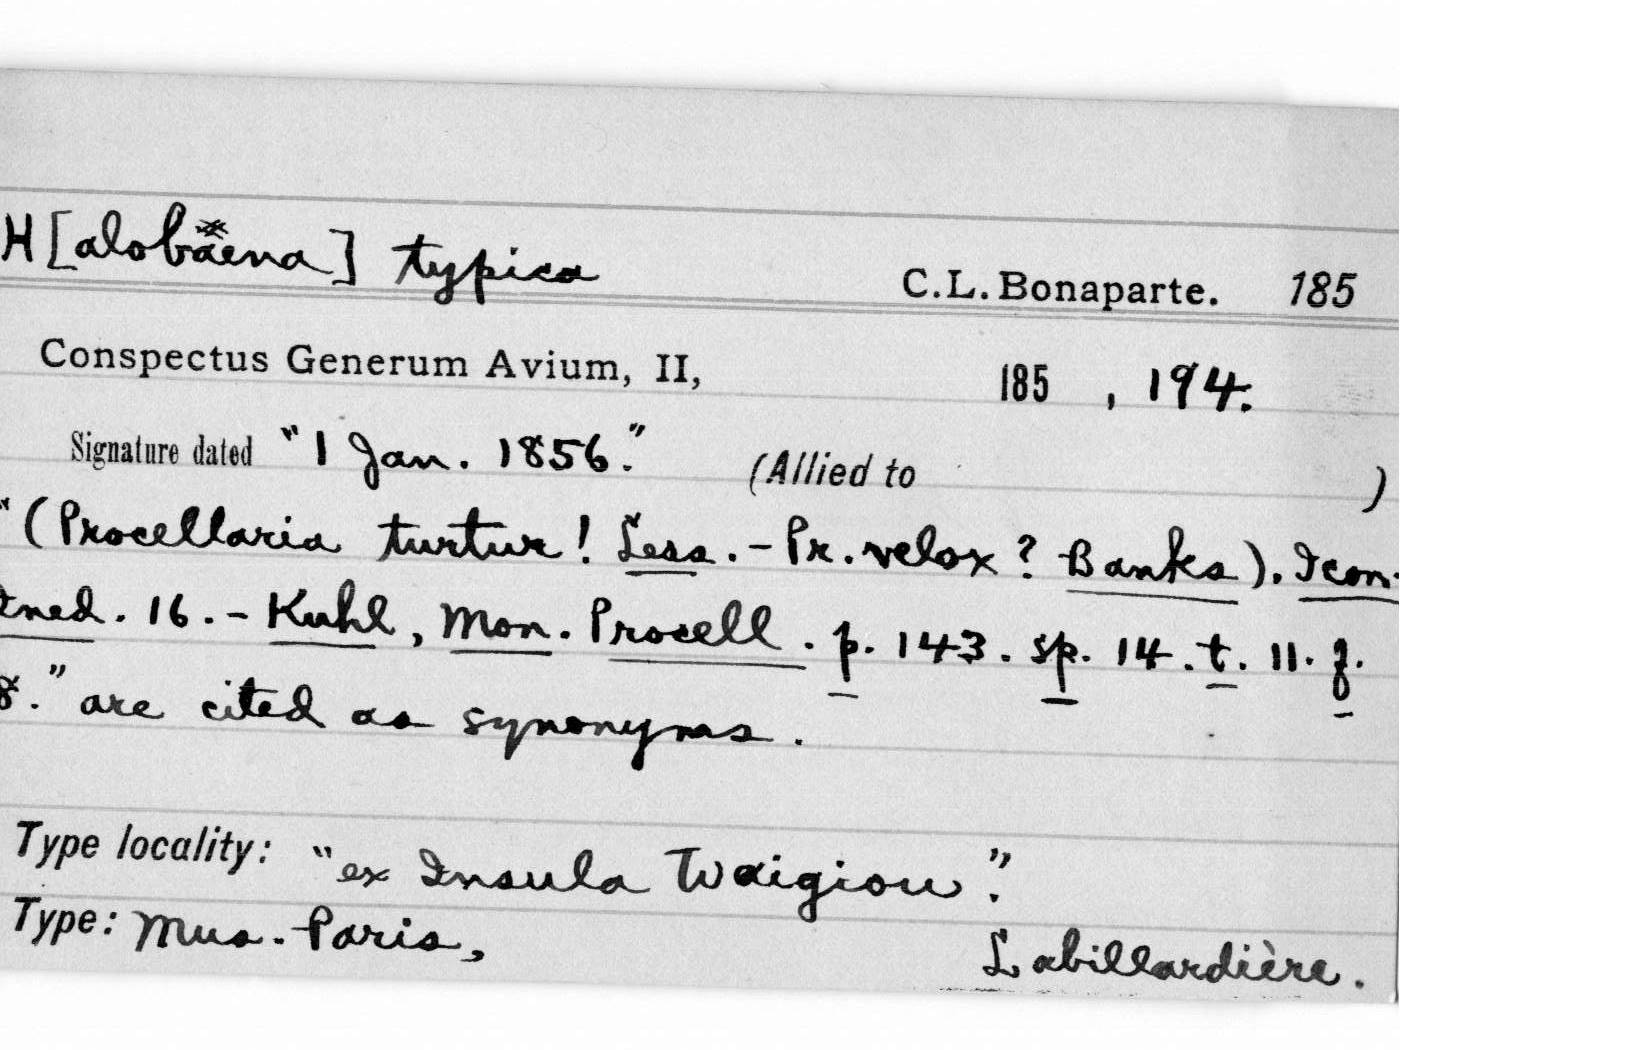 H[alobaena] typica C.L. Bonaparte. 185
Conspectus Generum Avium, II, 185 , 194.
Signature dated "1 Jan. 1856." (Allied to )
"(Procellaria turtur! Less. - Pr. velox? Banks). Icon.
ined. 16. - Kuhl, Mon. Procell. p. 143. sp. 14. t. 11. f.
8." are cited as synonyms.
Type locality: "ex Insula Waigiou".
Type: Mus. Paris, Labillardière.